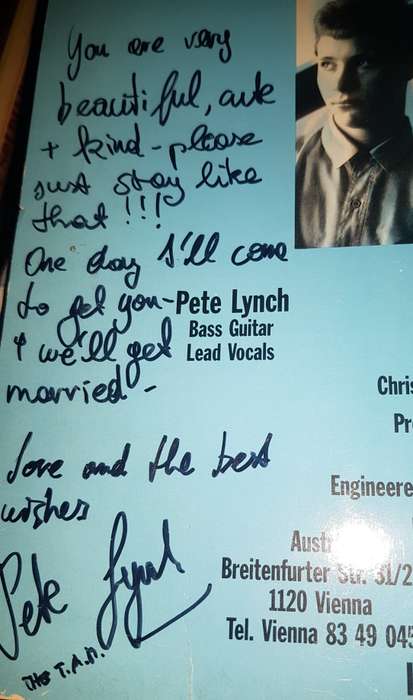 You are very
beautiful, cute
+ kind - please
just stay like
that!!!
One day I'll come
to get you -
+ we'll get
married -
love and the best
wishes
Pete Lynch
The T.A.P.
Pete Lynch
Bass Guitar
Lead Vocals
Chris
Pr
Engineere
Aust
Breitenfurter Str. 31/2
1120 Vienna
Tel. Vienna 83 49 045